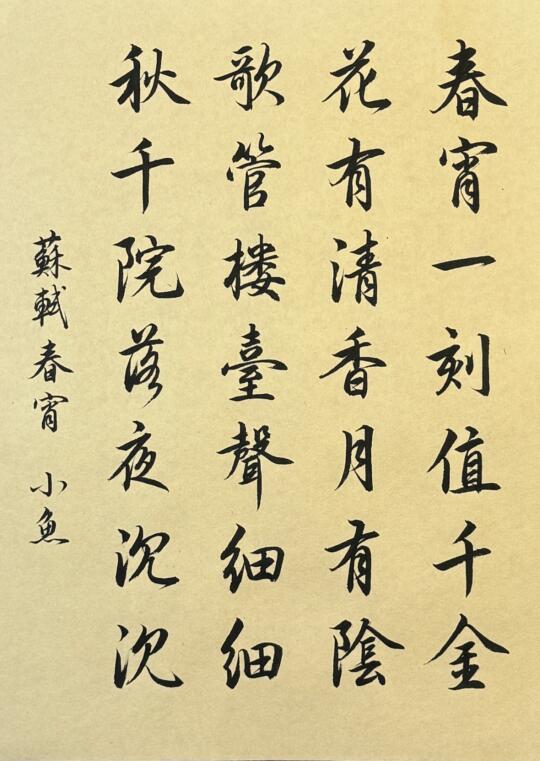 春宵一刻值千金
花有清香月有陰
歌管楼臺聲細細
秋千院落夜沉沉
蘇軾春宵 小魚